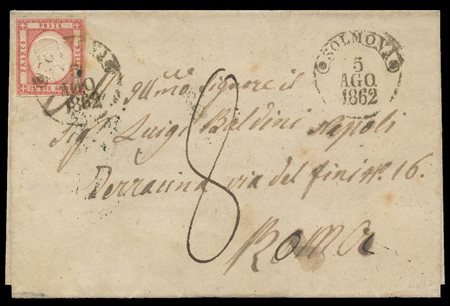 FRANCO POSTE BOLLO
SOLMONA
5
AGO.
1862
AGO
1862
Ill.mo Signore il
Sig. Luigi Baldini Napoli
Terracina via del fini N. 16.
8
Roma